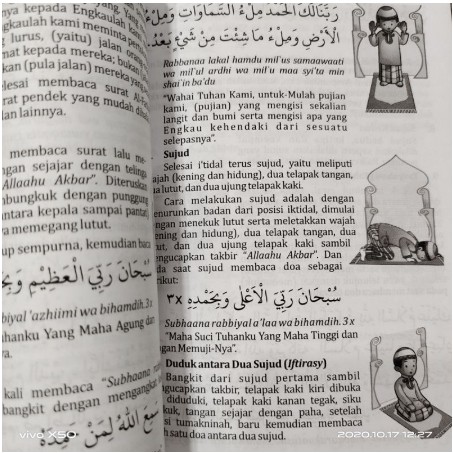 kepada Engkaulah kami
lurus, (yaitu) jalan orang
mat kepada mereka; bukan
(pula jalan) mereka yang
selesai membaca surat Al-
rat pendek yang mudah
lainnya.
membaca surat lalu
ngan sejajar dengan telinga
"Allaahu Akbar". Diteruskan
mbungkuk dengan punggung
ntara kepala sampai
a memegang lutut.
up sempurna, kemudian baca
سُبْحَانَ رَبِّيَ الْعَظِيْمِ
biyal 'azhiimi wa bihamdih. 3x
hanku Yang Maha Agung dan
ya.
kali membaca "Subhaana
bangkit dengan mengangkat
سَمِعَ اللهُ لِمَنْ حَمِدَهُ
رَبَّنَا لَكَ الْحَمْدُ مِلْءُ السَّمَاوَاتِ وَمِلْءُ
الْأَرْضِ وَمِلْءُ مَا شِئْتَ مِنْ شَيْءٍ بَعْدُ
Rabbanaa lakal hamdu mil'us samaawaati
wa mil'u ardhi wa mil'u maa syi'ta min
shai'in ba'du
"Wahai Tuhan Kami, untuk-Mulah pujian
kami, (pujian) yang mengisi sekalian
langit dan bumi serta mengisi apa yang
Engkau kehendaki dari sesuatu
selepasnya".
Sujud
Selesai i'tidal terus sujud, yaitu meliputi
wajah (kening dan hidung), dua telapak tangan,
dua lutut, dan dua ujung telapak kaki.
Cara melakukan sujud adalah dengan
menurunkan badan dari posisi iktidal, dimulai
dengan menekuk lutut serta meletakkan wajah
(kening dan hidung), dua telapak tangan, dua
lutut, dan dua ujung telapak kaki sambil
mengucapkan takbir "Allaahu Akbar". Dan
pada saat sujud membaca doa sebagai
berikut:
سُبْحَانَ رَبِّيَ الْأَعْلَى وَبِحَمْدِهِ ٣x
Subhaana rabbiyal a'laa wa bihamdih. 3x
"Maha Suci Tuhanku Yang Maha Tinggi dan
dengan Memuji-Nya".
Duduk antara Dua Sujud (Iftirasy)
Bangkit dari sujud pertama sambil
mengucapkan takbir, telapak kaki kiri dibuka
diduduki, telapak kaki kanan tegak, siku
tekuk, tangan sejajar dengan paha, setelah
tumakninah, baru kemudian membaca
satu doa antara dua sujud.
vivo X50
2020.10.17 12:27